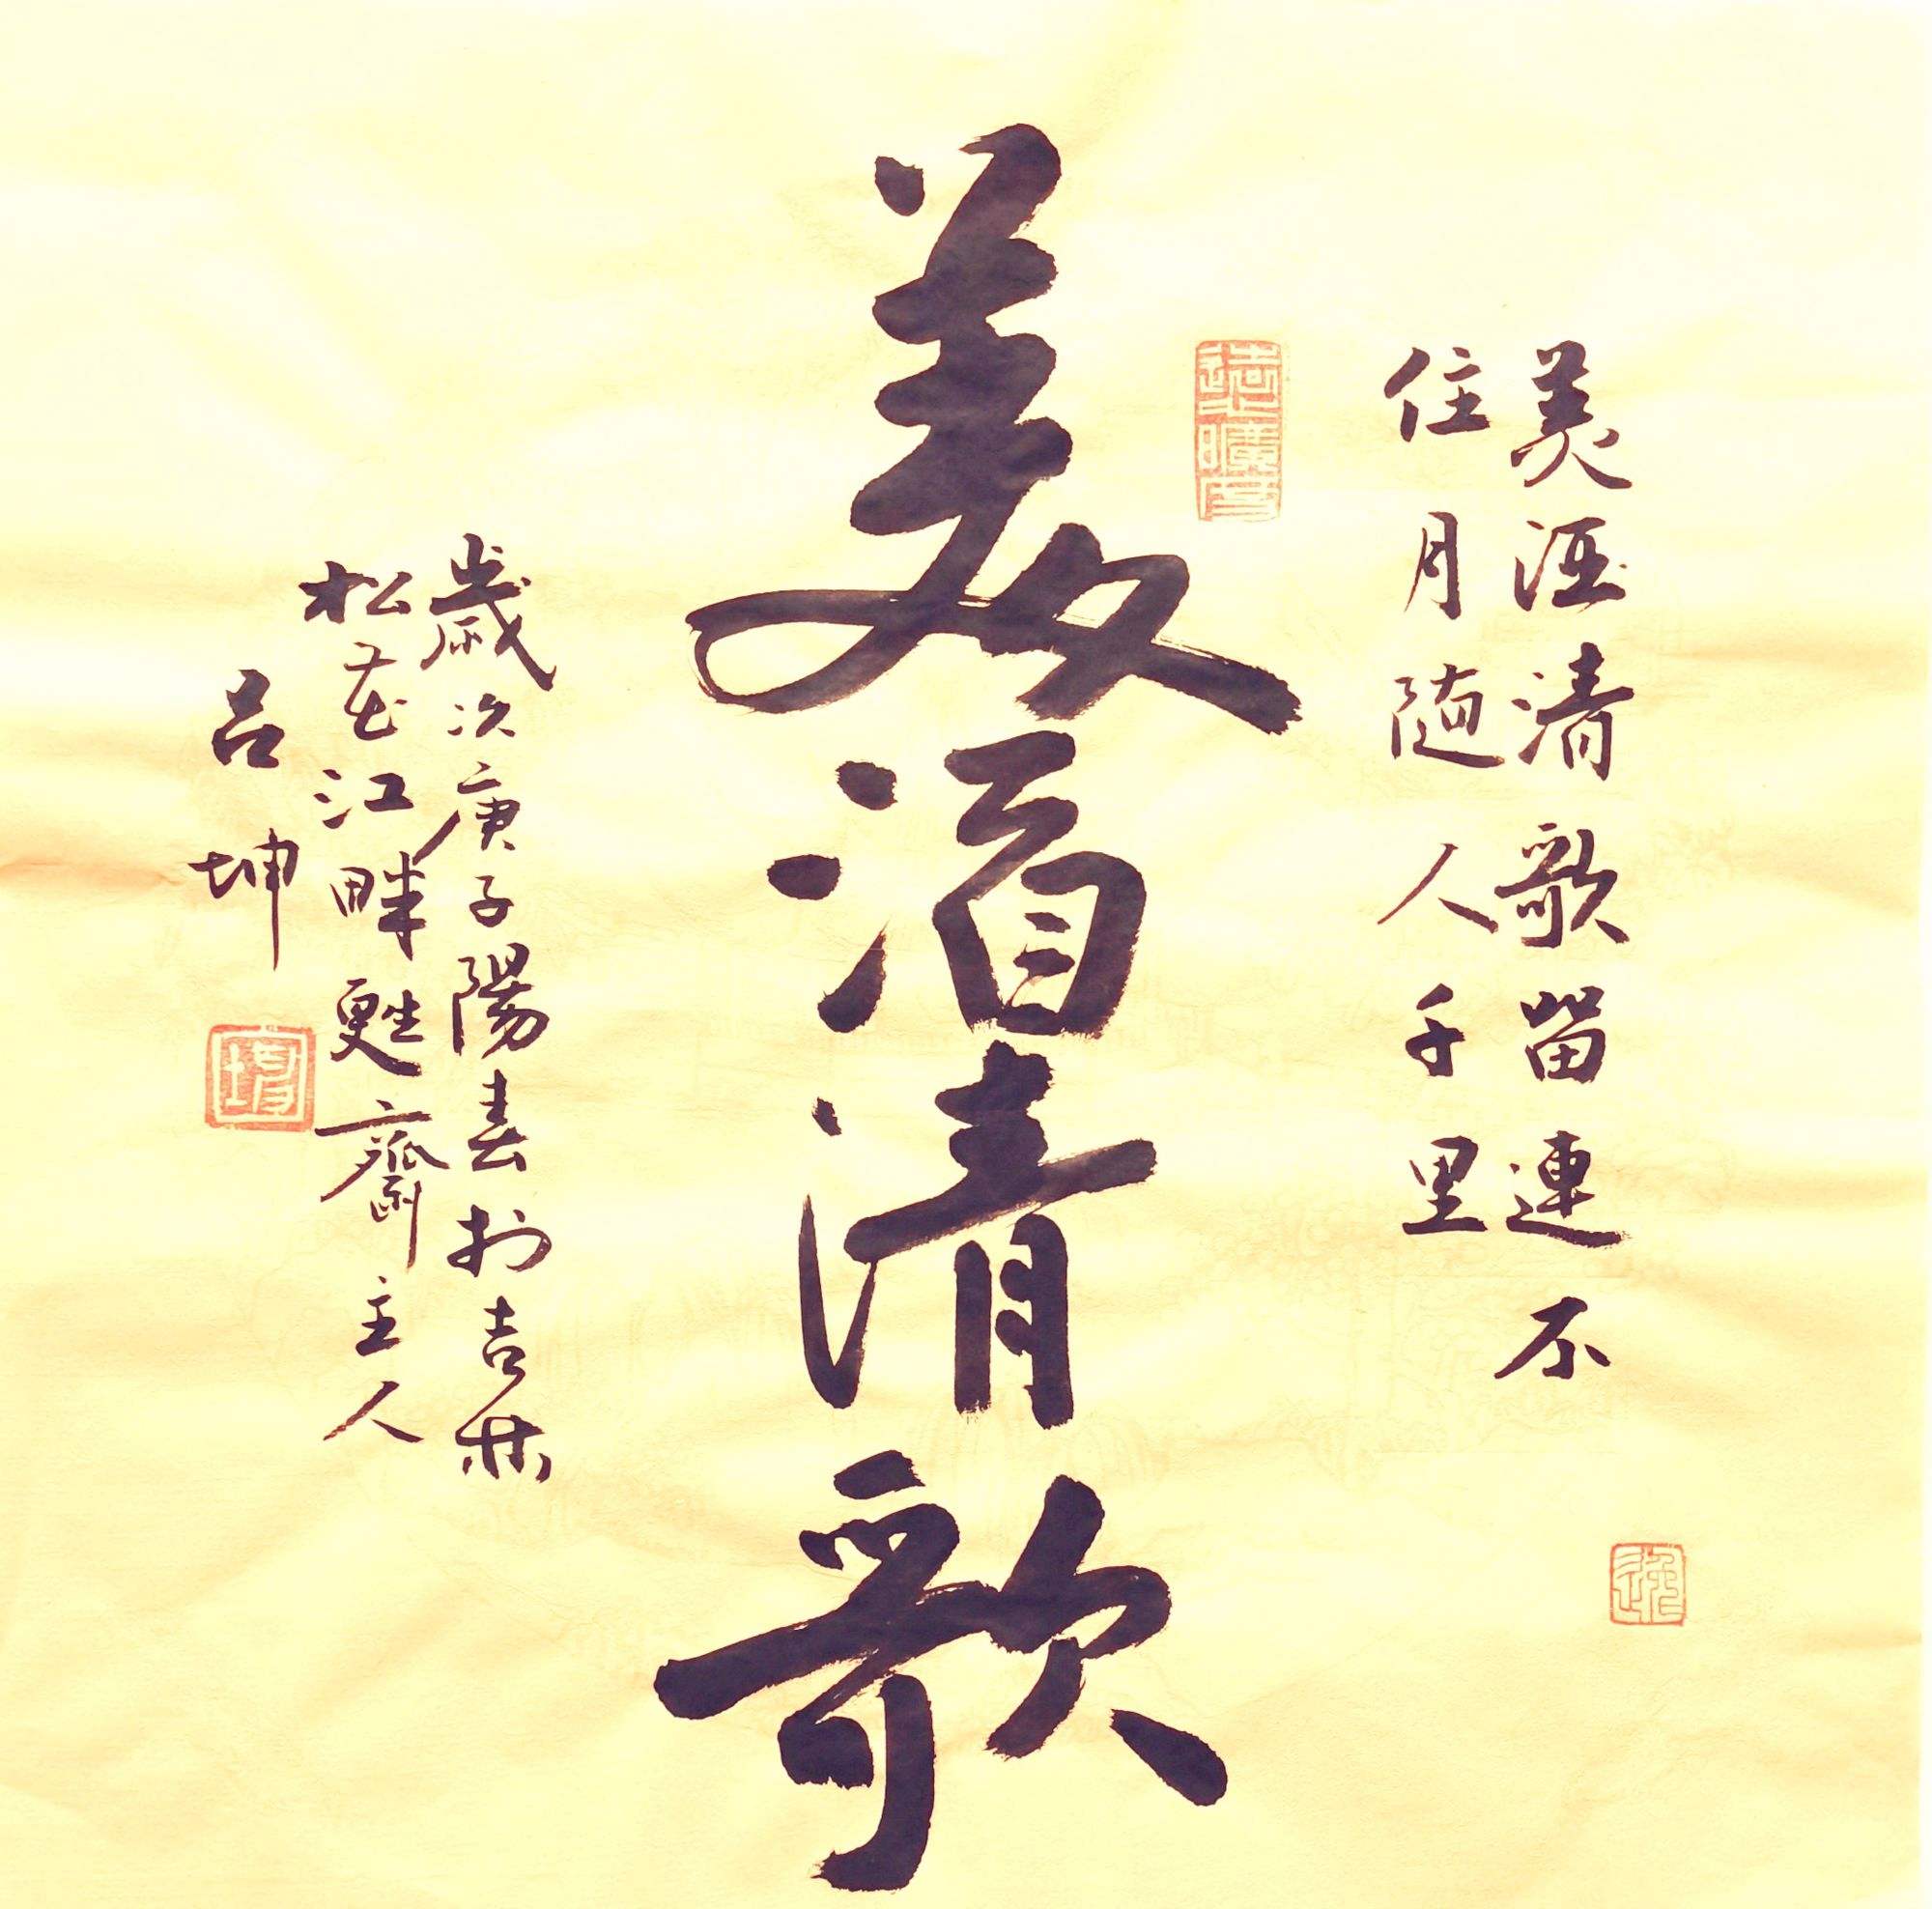 美酒清歌留連不
住月隨人千里
美酒清歌
歲次庚子陽春於吉林
松花江畔甦齋主人
呂坤